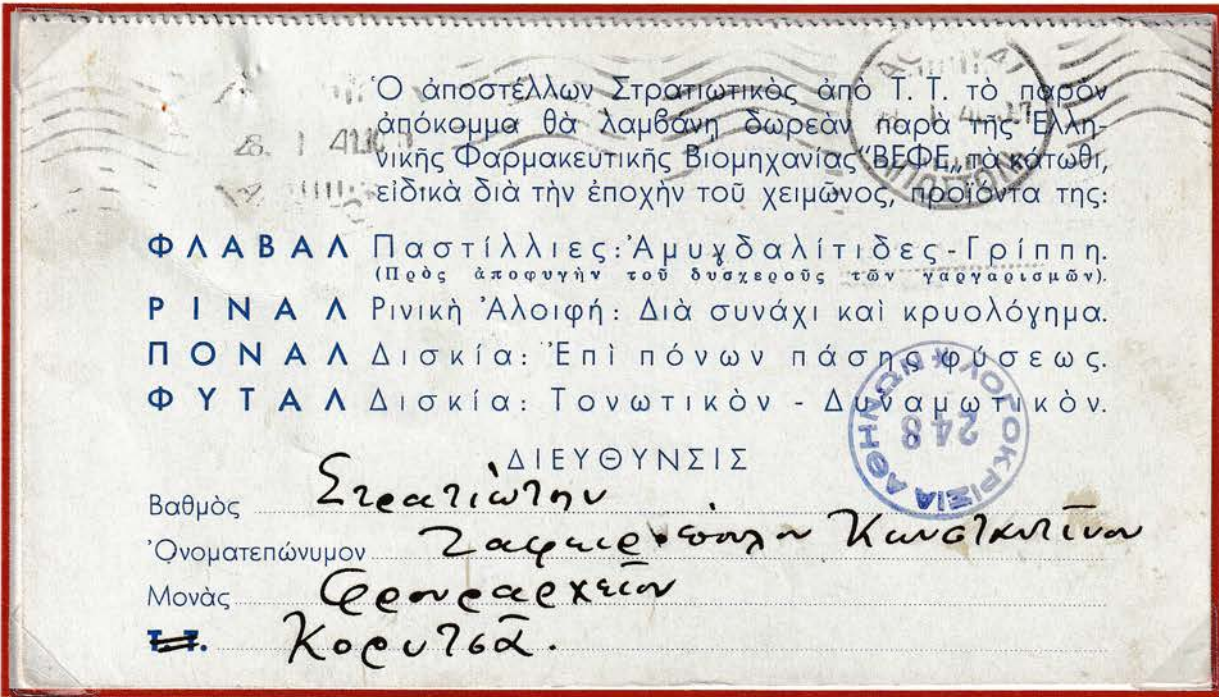 Ὁ ἀποστέλλων Στρατιωτικὸς ἀπὸ Τ. Τ. τὸ παρὸν
ἀπόκομμα θὰ λαμβάνη δωρεὰν παρὰ τῆς Ἑλλη-
νικῆς Φαρμακευτικῆς Βιομηχανίας "ΒΕΦΕ„ τὰ κάτωθι,
εἰδικὰ διὰ τὴν ἐποχὴν τοῦ χειμῶνος, προϊόντα της:
28. 1 41
ΦΛΑΒΑΛ Παστίλλιες: Ἀμυγδαλίτιδες - Γρίππη.
(Πρὸς ἀποφυγὴν τοῦ δυσχεροῦς τῶν γαργαρισμῶν).
ΡΙΝΑΛ Ρινικὴ Ἀλοιφή: Διὰ συνάχι καὶ κρυολόγημα.
ΠΟΝΑΛ Δισκία: Ἐπὶ πόνων πάσης φύσεως.
ΦΥΤΑΛ Δισκία: Τονωτικὸν - Δυναμωτικὸν.
ΛΟΓΟΚΡΙΣΙΑ ΑΘΗΝΩΝ *
248
ΔΙΕΥΘΥΝΣΙΣ
Βαθμὸς Στρατιώτην
Ὀνοματεπώνυμον Ζαφειρόπουλον Κωνσταντίνον
Μονὰς Φρουραρχεῖον
Τ. Τ. Κορυτσᾶ.